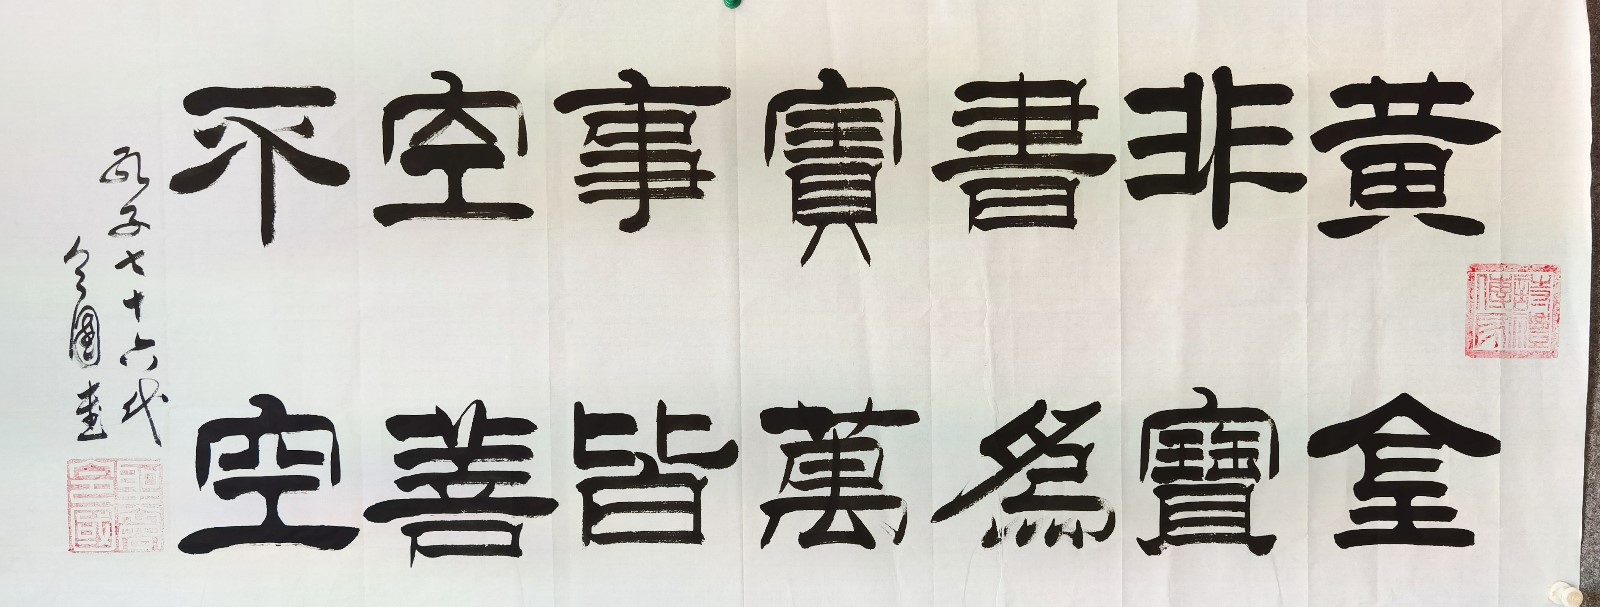 黄金
非寶
書為
寶萬
事皆
空善
不空
孔子七十六代
令國書